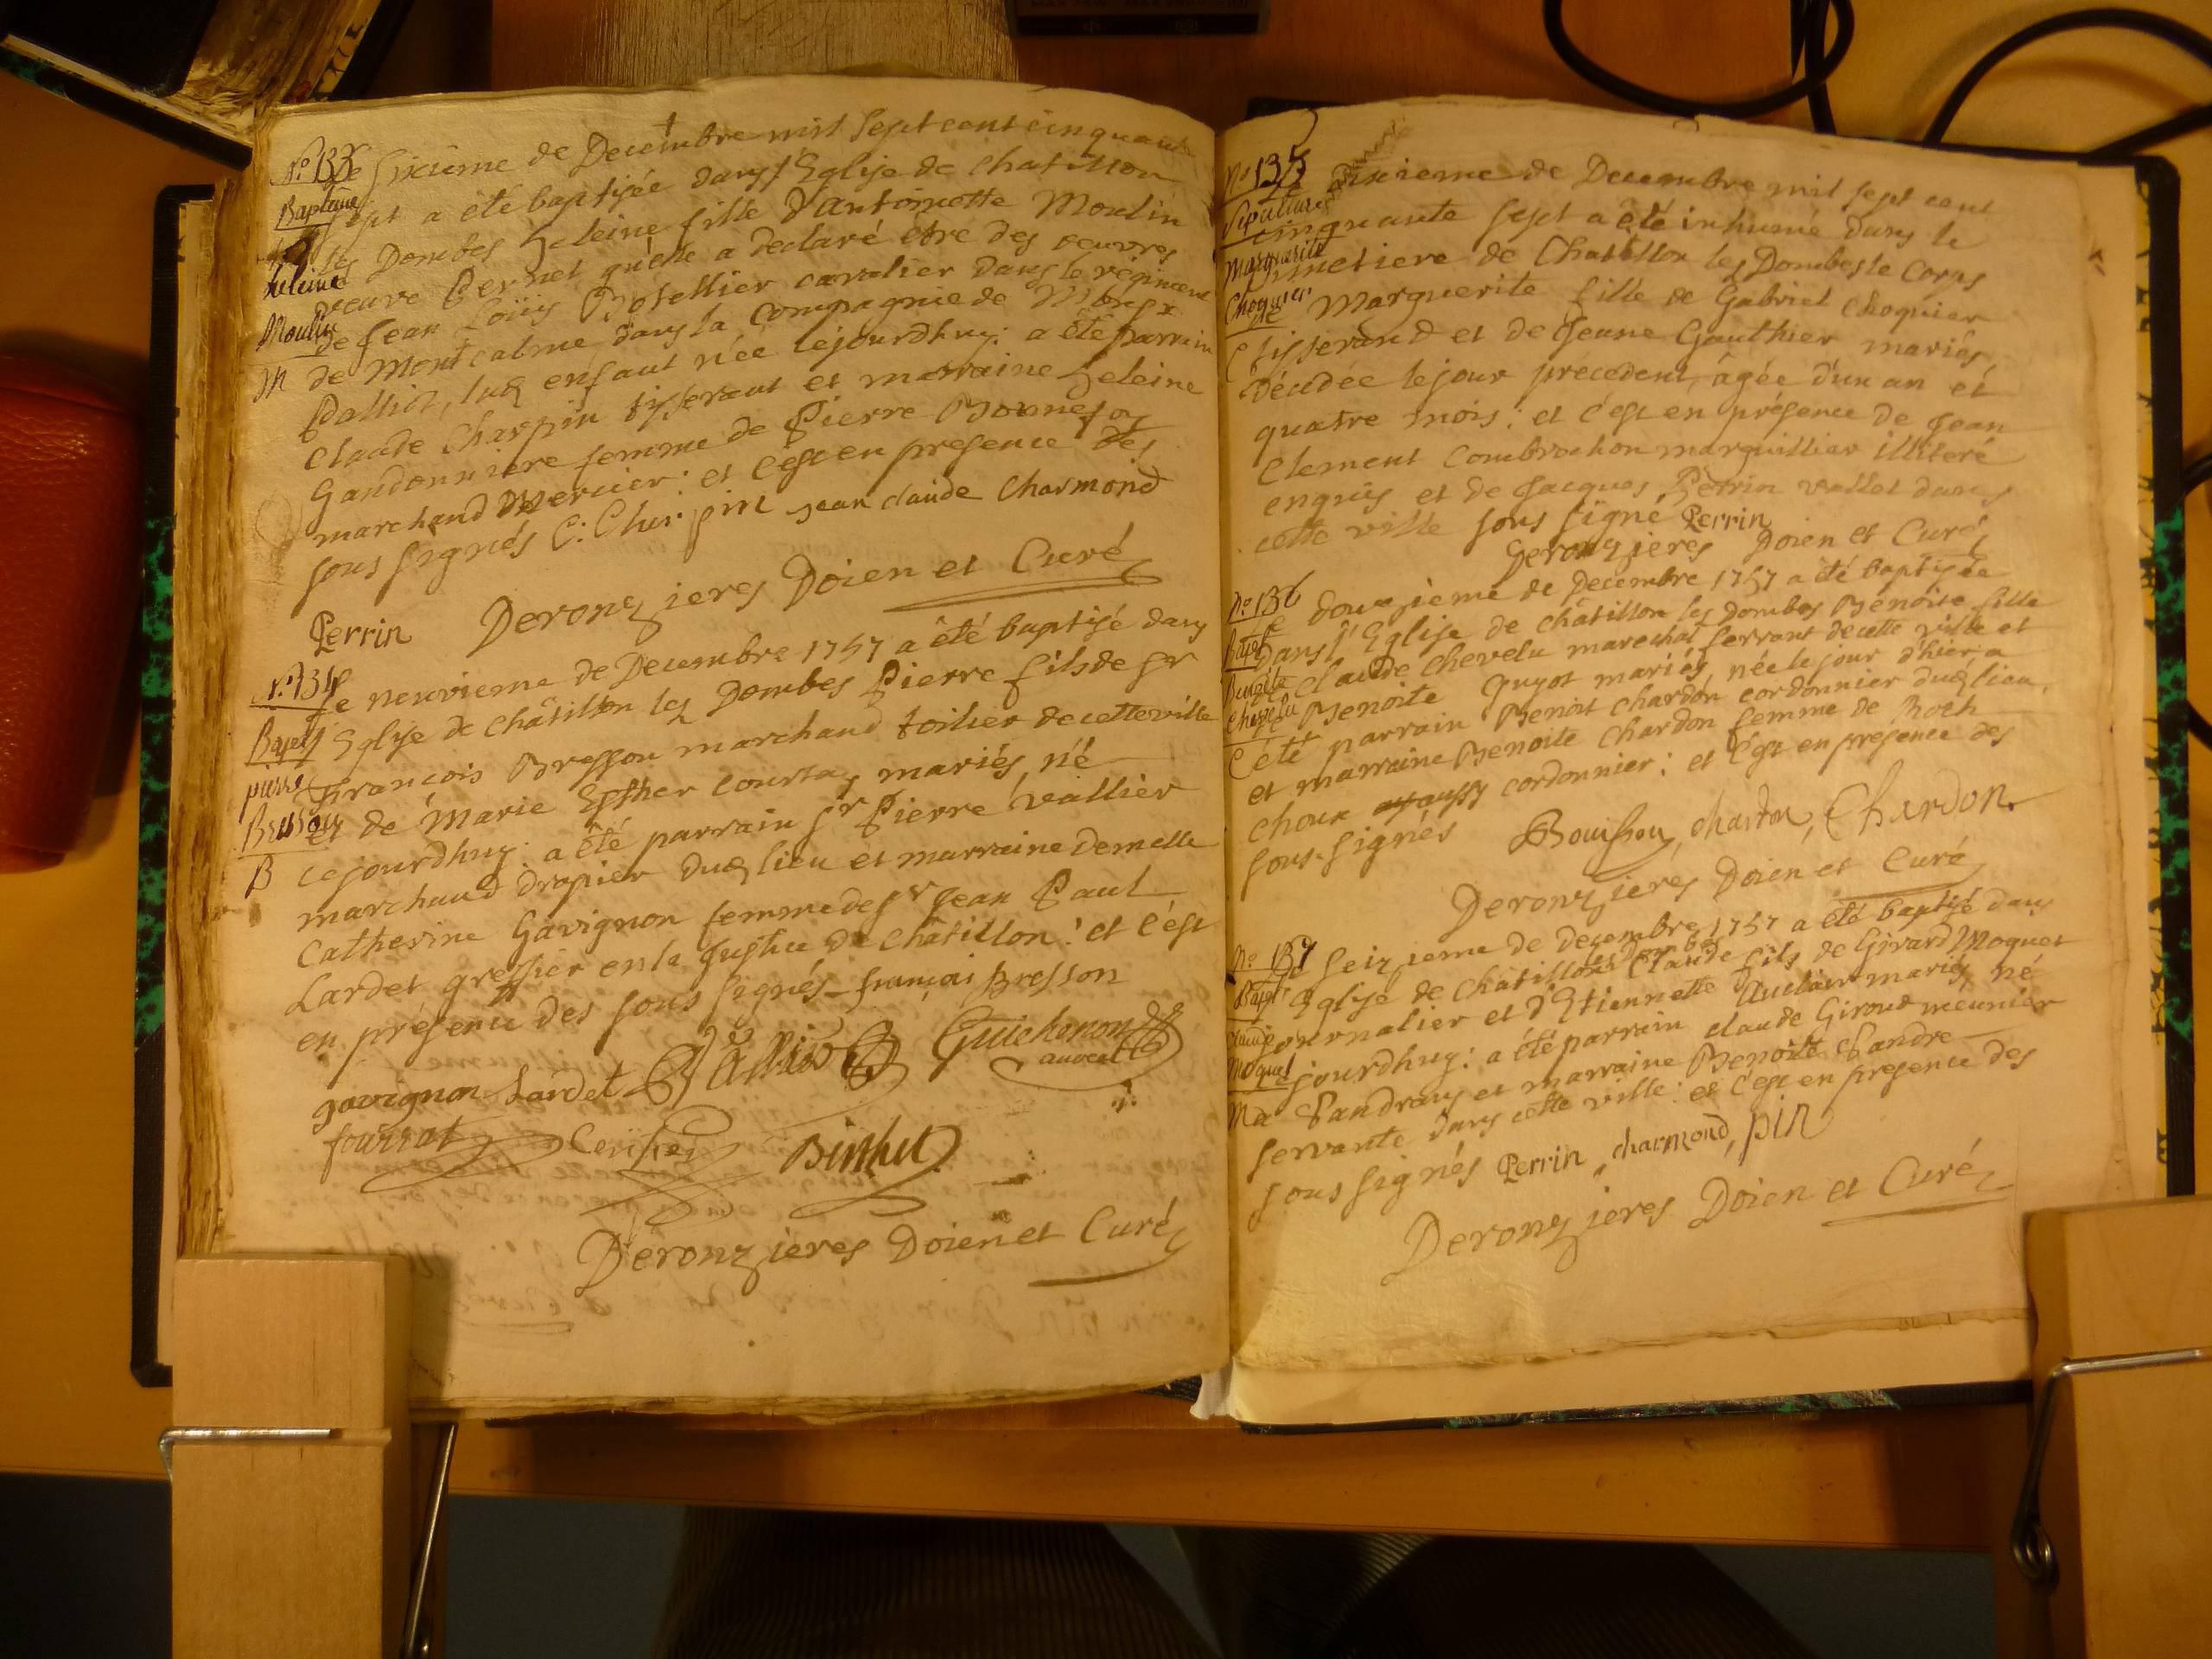 N° 133
Baptême
heleine
Moulin
M
Le sixieme de Decembre mil sept cent cinquante
sept a été baptisée dans l'Eglise de Chatillon
les Dombes heleine fille d'Antoinette Moulin
veuve Pernet qu'elle a declaré être des oeuvres
de Jean Loüis cavalier dans le régiment
de Montcalme dans la compagnie de
enfant née cejourdhuy: a été parrain
Claude Charpin tisserant et marraine heleine
Gandonniere femme de Pierre Bonnefoy
marchand Mercier: et c'est en presence des
sous signés C: Cherpin jean claude Charmond
Perrin Deronzieres Doïen et Curé
N° 134
Bapt
pierre
Bresson
B
Le neuvieme de Decembre 1757 a été baptisé dans
Eglise de Châtillon les Dombes Pierre fils de sr
François Bresson marchand toilier de cette ville
et de Marie Esther Courtas mariés, né
cejourdhuy: a été parrain sr Pierre Vallier
marchand drapier dud lieu et marraine demelle
Catherine Gavignon femme de sr Jean Paul
Lardet greffier en la Justice de Châtillon: et c'est
en présence des sous signés françai Bresson
gavignon Lardet Vallier Guichenon
avocat
Deronzieres Doïen et Curé
N° 135
Sepulture
Marguerite
Choquier
Le dixieme de Decembre mil sept cent
cinquante sept a été inhumé dans le
cimetiere de Chatillon les Dombes le corps
de Marguerite fille de Gabriel Choquier
tisserand et de Jeanne Gauthier mariés,
décédée le jour précedent, âgée d'un an et
quatre mois: et c'est en présence de Jean
Clement Combrochon marguillier illiteré
enquis et de Jacques Perrin vallet dans
cette ville sous signé Perrin
Deronzieres Doïen et Curé
N° 136
Bapt
Benoite
Chevelu
Le douzieme de Decembre 1757 a été baptisée
dans l'Eglise de Châtillon les Dombes Benoite fille
Claude Chevelu marechal ferrant de cette ville et
de Benoite Guyot mariés, née le jour d'hier: a
été parrain Benoit Chardon cordonnier dud lieu,
et marraine Benoite Chardon femme de Roch
Choux cordonnier: et c'est en presence des
sous-signés Bouisson, chardon, Chardon
Deronzieres Doïen et Curé
N° 137
Bapt
claude
Moquet
M
Le seizieme de decembre 1757 a été baptisé dans
Eglise de Châtillon les Dombes Claude fils de Girard Moquet
journalier et d'Etiennette Auclair mariés, né
cejourdhuy: a été parrain claude Giroud meunier
a Vandrans et marraine Benoite Vandre
servante dans cette ville: et c'est en presence des
sous signés Perrin, charmond, pin
Deronzieres Doïen et Curé